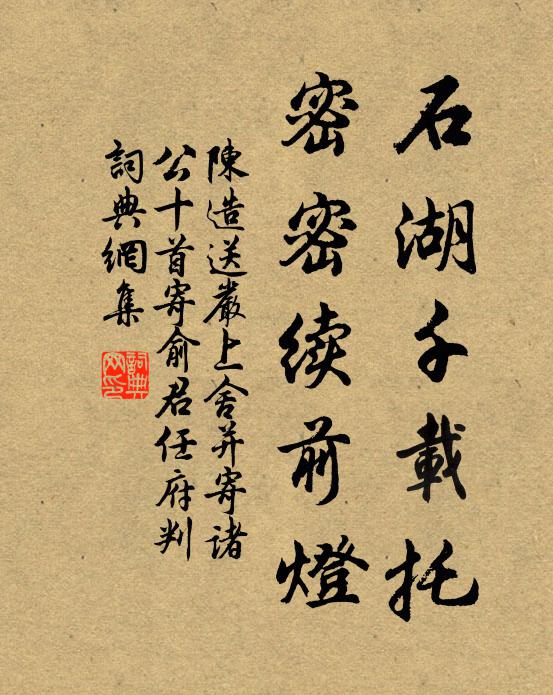 石湖千載托
密密续前燈
陳造送嚴上舍并寄諸
公十首寄俞君任府判
詞典網集
詞典
网印